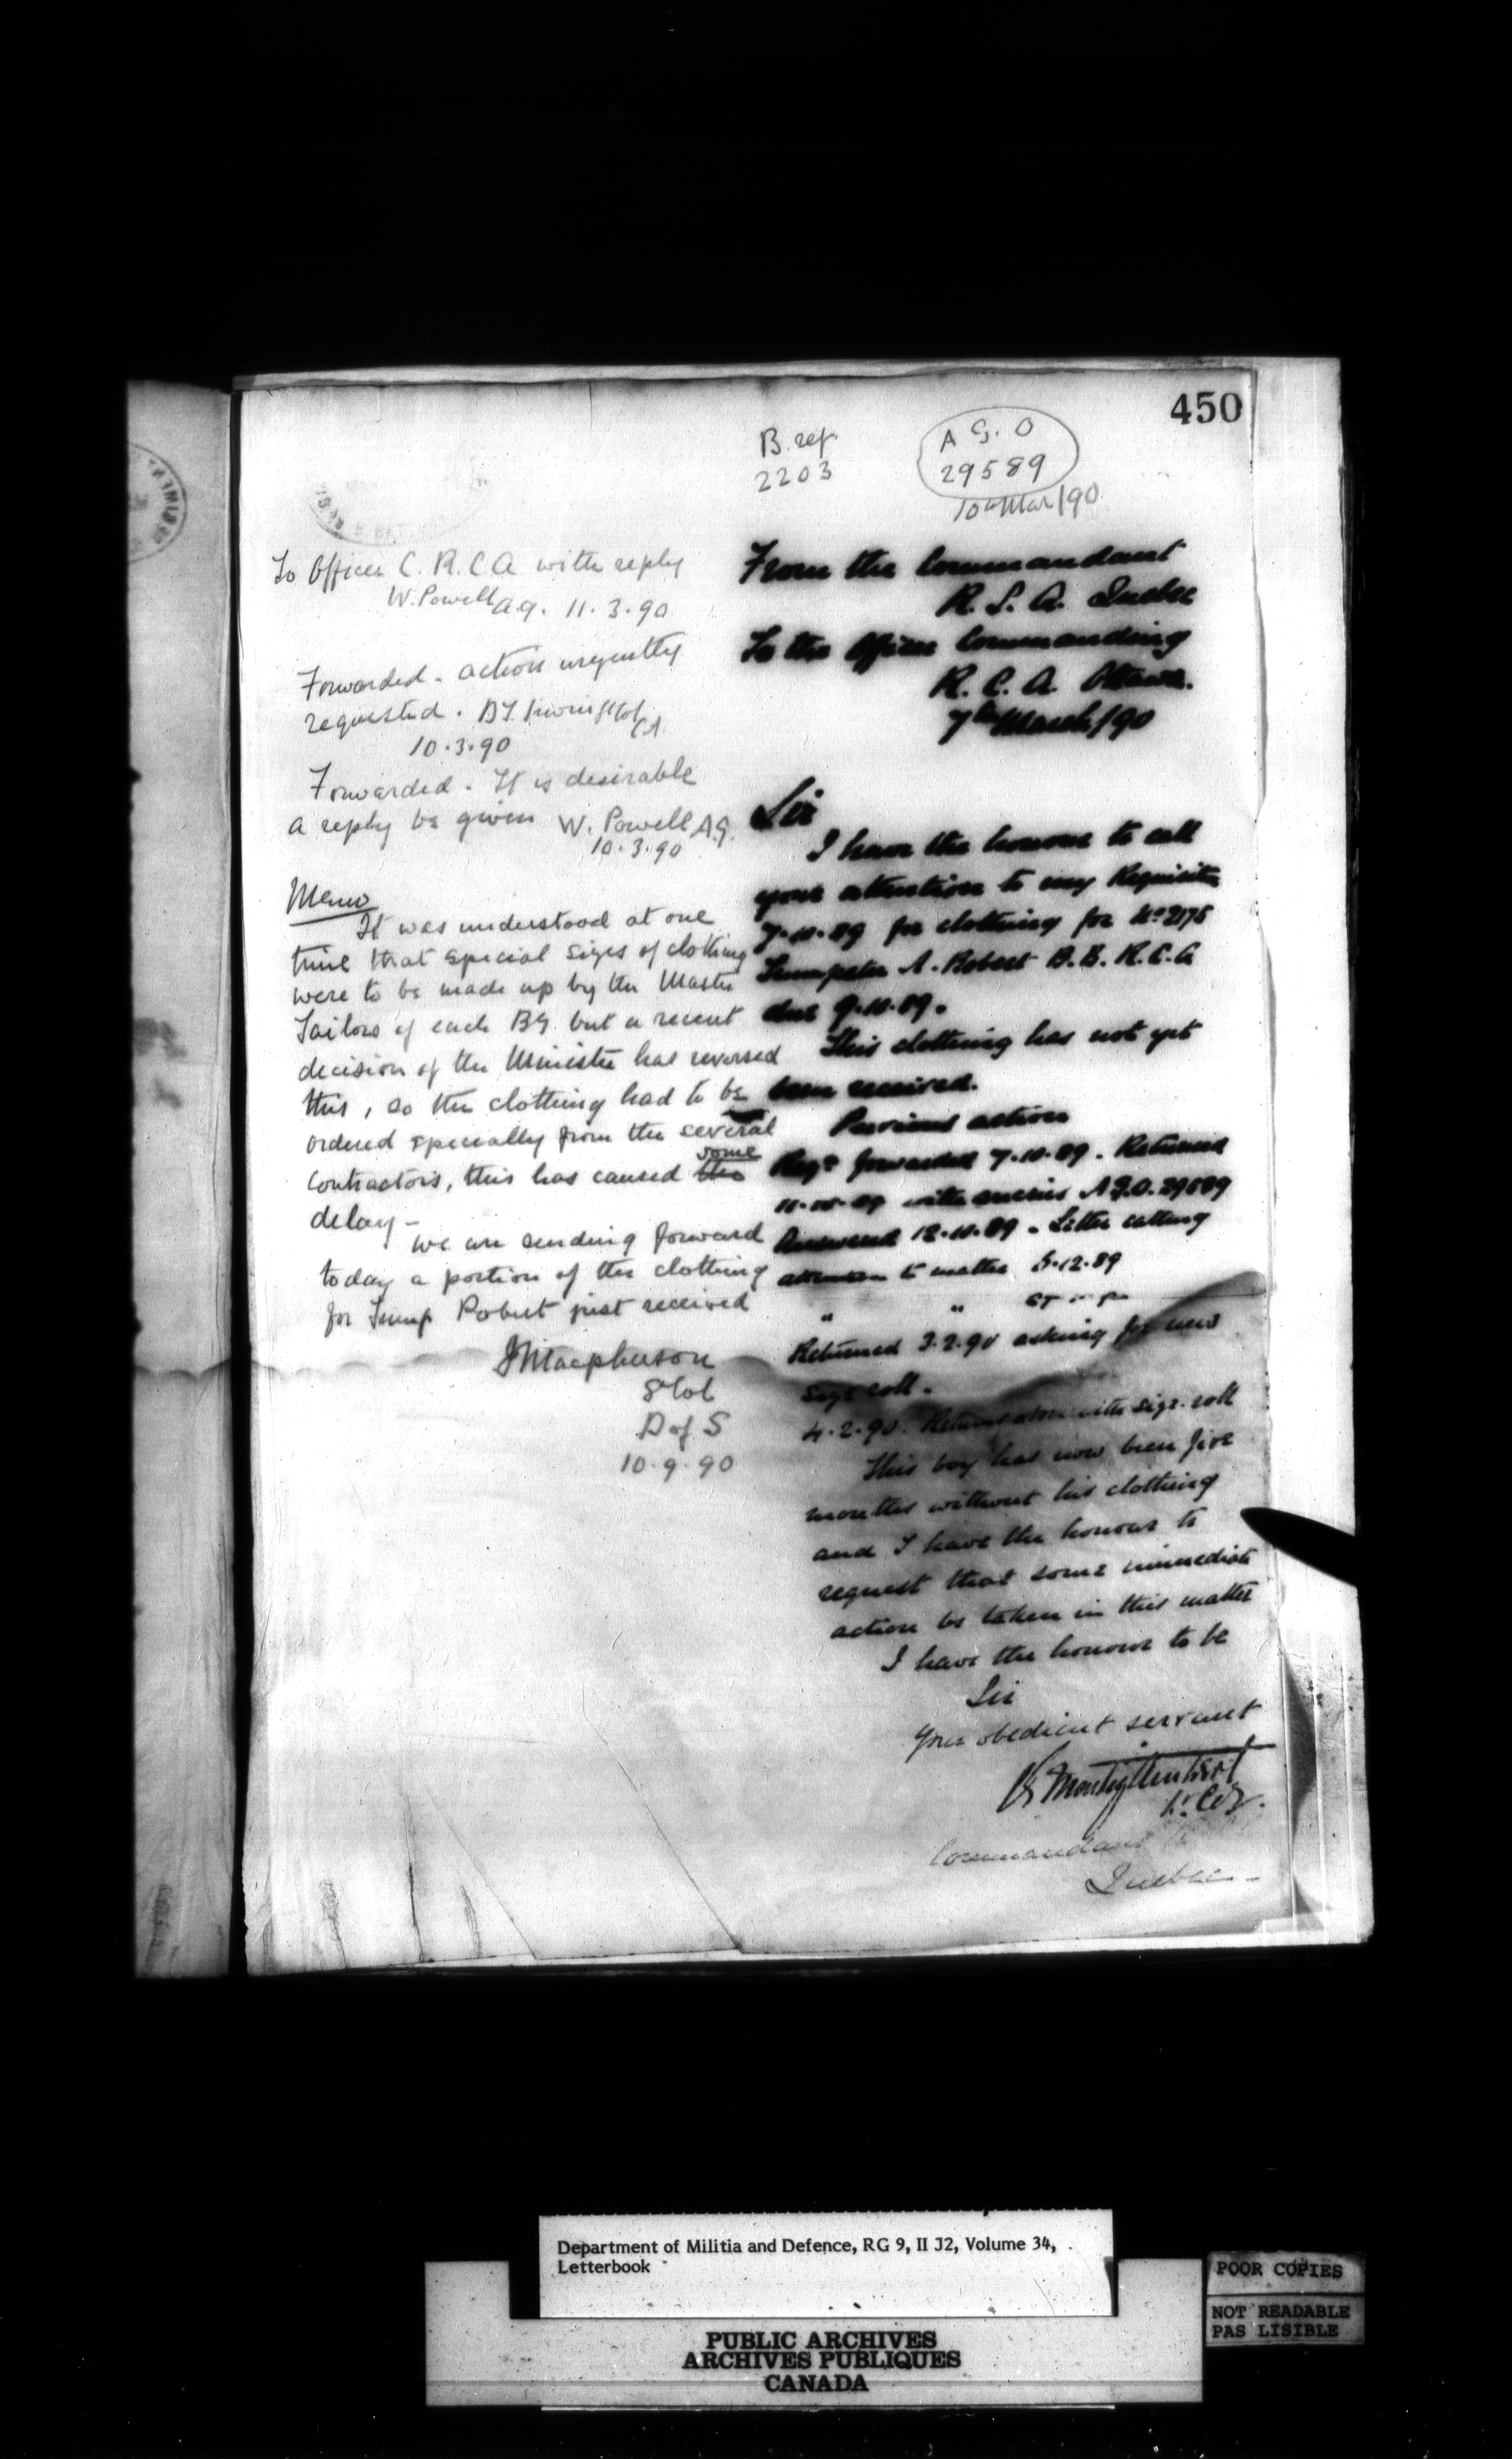 450
B. ref.
2203
A G. O
29589
10th Mar/90
To Officer C. R. C A with reply
W. Powell A.G. 11.3.90
Forwarded. action urgently
requested. D.T. Irwin
10.3.90
Forwarded. It is desirable
a reply be given W. Powell A.G.
10.3.90
Memo
It was understood at one
time that special sizes of clothing
were to be made up by the Master
Tailors of each By. but a recent
decision of the Minister has reversed
this, so the clothing had to be
ordered specially from the several
contractors, this has caused some
delay -
We are sending forward
today a portion of the clothing
for Trump Robert just received
J Macpherson
Lt Col
D of S
10.9.90
From the Commandant
R. S. A. Quebec
To the Officer Commanding
R. C. A. Ottawa.
7th March/90
Sir
I have the honour to call
your attention to my Requisition
7.10.89 for clothing for No 2175
Trumpeter A. Robert B. B. R. C. A
due 9.10.89.
This clothing has not yet
been received.
Previous action
Reqn forwarded 7.10.89. Returned
with queries A.G.O. 29589
Answered 12.10.89. Letter calling
attention to matter 5.12.89
" "
Returned 3.2.90 asking for new
size roll.
4.2.90. Returned with size roll
This boy has now been five
months without his clothing
and I have the honour to
request that some immediate
action be taken in this matter
I have the honour to be
Sir
Your obedient servant
Lt Col.
Commandant
Quebec -
Department of Militia and Defence, RG 9, II J2, Volume 34,
Letterbook
PUBLIC ARCHIVES
ARCHIVES PUBLIQUES
CANADA
POOR COPIES
NOT READABLE
PAS LISIBLE